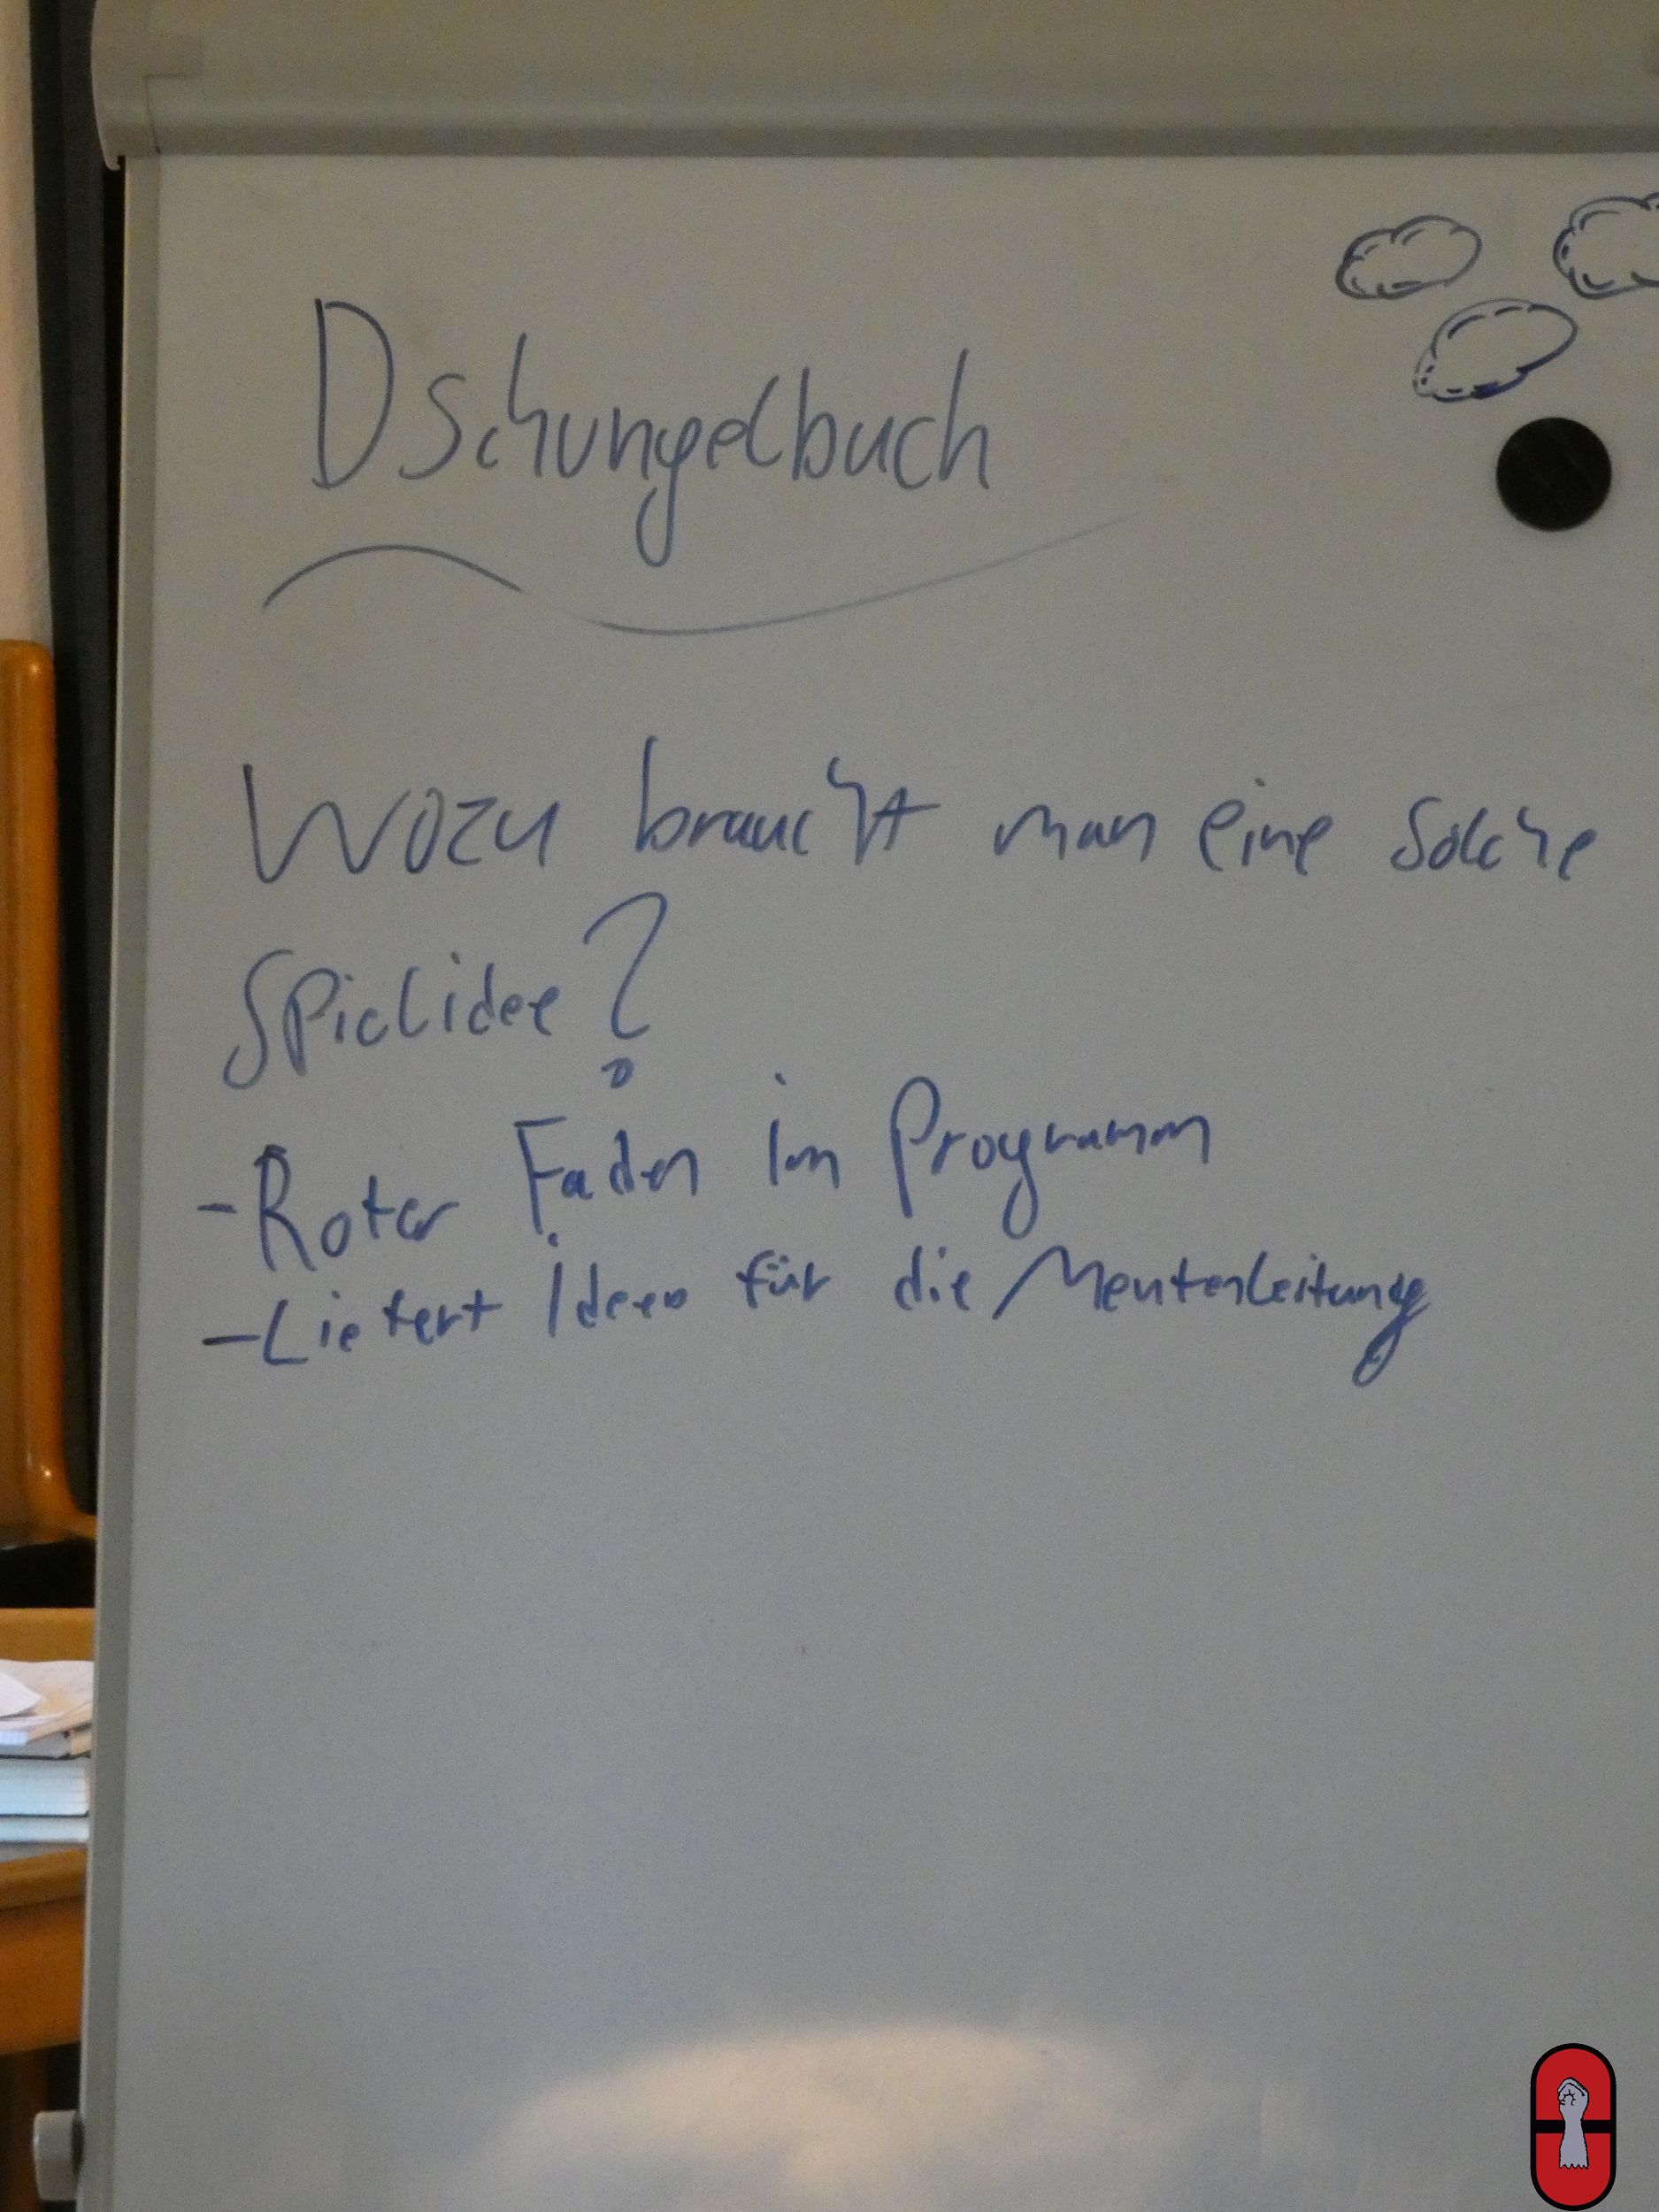 Dschungelbuch
Wozu braucht man eine solche
Spielidee?
- Roter Faden im Programm
- Liefert Ideen für die Meutenleitung